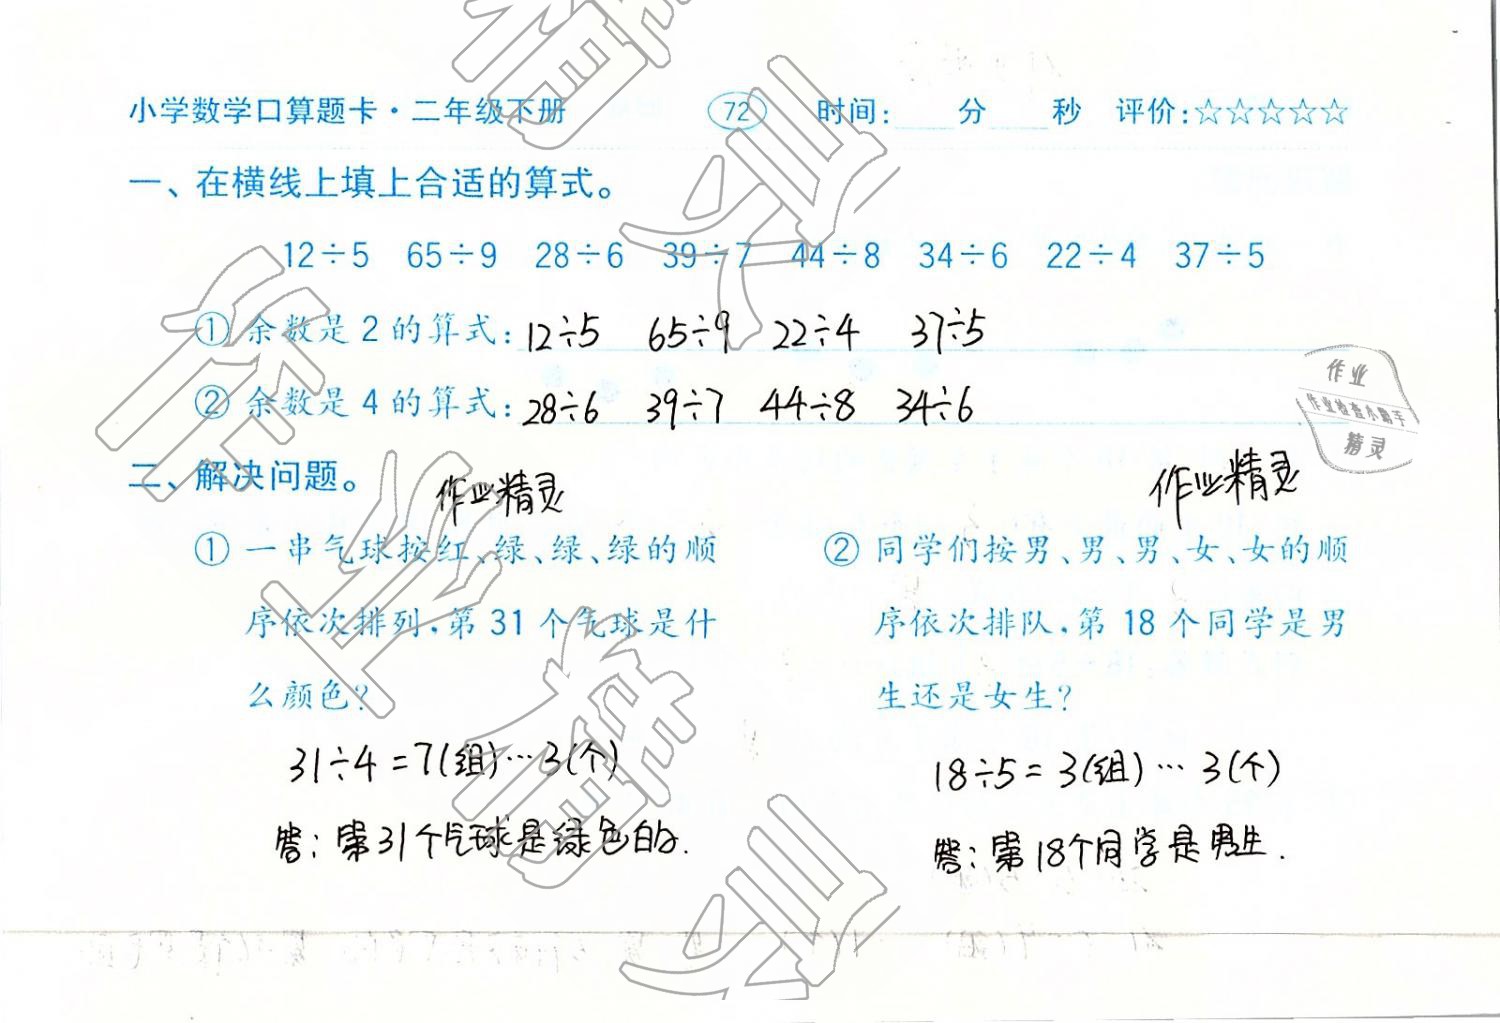 小学数学口算题卡·二年级下册 72 时间:____分____秒 评价:☆☆☆☆☆
一、在横线上填上合适的算式。
12÷5 65÷9 28÷6 39÷7 44÷8 34÷6 22÷4 37÷5
① 余数是2的算式: 12÷5 65÷9 22÷4 37÷5
② 余数是4的算式: 28÷6 39÷7 44÷8 34÷6
作业
作业检查小助手
精灵
二、解决问题。
作业精灵
作业精灵
① 一串气球按红、绿、绿、绿的顺
序依次排列,第31个气球是什
么颜色?
31÷4=7(组)…3(个)
答:第31个气球是绿色的.
② 同学们按男、男、男、女、女的顺
序依次排队,第18个同学是男
生还是女生?
18÷5=3(组)…3(个)
答:第18个同学是男生.
作业精灵